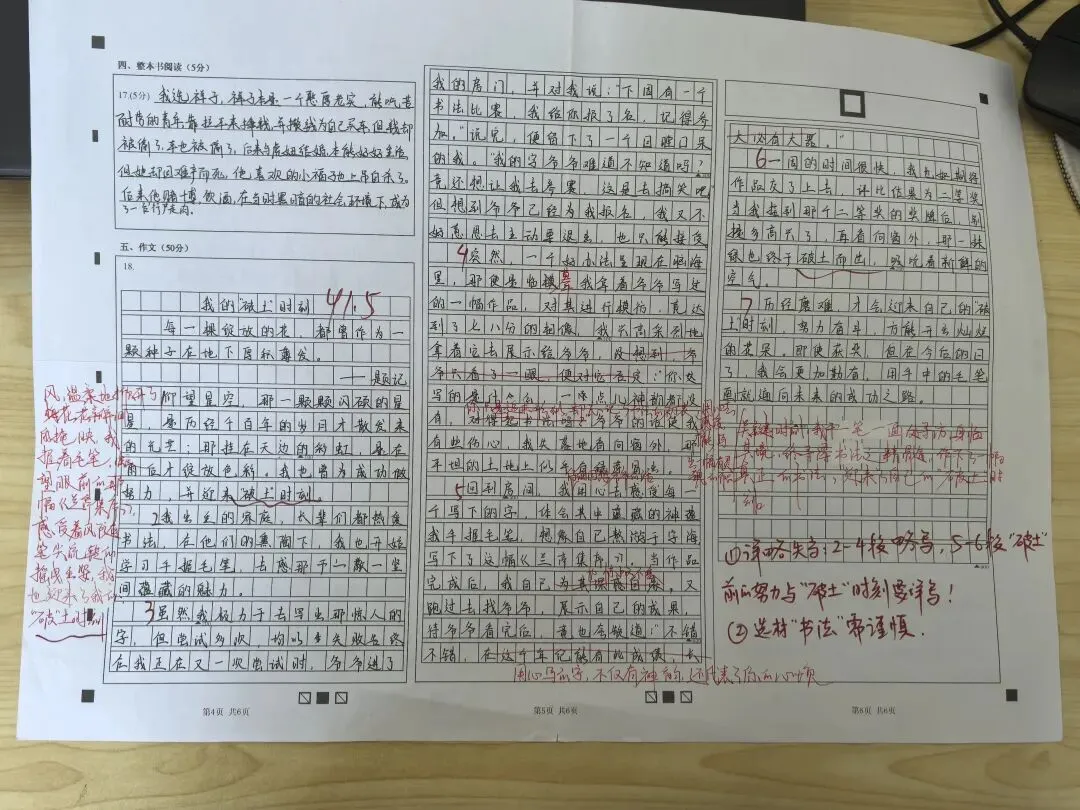 四、整本书阅读（5分）
17.(5分) 我选祥子，祥子本是一个憨厚老实，能吃苦
耐劳的青年，靠拉车来挣钱，并攒钱为自己买车，但我却
被偷了，车也被偷了，后来与虎妞结婚，本能好好生活，
但她却因难产而死，他喜欢的小福子也上吊自杀了，
后来他赌博，饮酒，在当时黑暗的社会环境下，成为
了一台行尸走肉。
五、作文（50分）
18.
我的“破土”时刻
41.5
每一棵绽放的花，都曾作为一
颗种子在地下厚积薄发。
——题记
仰望星空，那一颗颗闪硕的星
星，是历经千百年的岁月才散发来
的光芒；那挂在天边的彩虹，是在
雨后才绽放色彩。我也曾为成功做
努力，并迎来“破土”时刻。
2 我出生的家庭，长辈们都热爱
书法，在他们的熏陶下，我也开始
学习手握毛笔，去感那一敬一笔
间蕴藏的魅力。
3 虽然我极力于去写出那惊人的
字，但尝试多次，均以失败告终
在我正在又一次尝试时，爷爷进了
风，温柔地
握着毛笔，
望眼前的那
幅《兰亭集序》，
感受着
“破土”时刻
第4页 共6页
我的房门，并对我说：“下周有一个
书法比赛，我给你报了名，记得参
加。”说完，便留下了一个目瞪口呆
的我。“我的字爷爷难道不知道吗？
竟还想让我去参赛，这是去搞笑吧
但想到爷爷已经为我报名，我又不
好意思去主动要退出，也只能接受
4 突然，一个好办法呈现在脑海
里，那便是临摹，我拿着爷爷写过
的一幅作品，对其进行模仿，直达
到了七八分的相像，我兴高采烈地
拿着它去展示给爷爷，没想到，爷
爷只看了一眼，便对它否定：“你失
写的是什么，一点儿神韵都没
有，对得起书法吗？”爷爷的话使我
有些伤心，我失落地看向窗外，那
平坦的土地上似乎有绿意冒出。
5 回到房间，我用心去感受每一
个写下的字，体会其中蕴藏的神韵
我手握毛笔，想象自己熬游于字海
写下了这幅《兰亭集序》，当作品
完成后，我自己为其深感自豪。又
跑过去找爷爷，展示自己的成果，
待爷爷看完后，竟也夸赞道：“不错
不错，在这个年纪能有此成绩，长
用心写的字，不仅有神韵，还代表了你的心境
第5页 共6页
大必有大器。”
6 一周的时间很快，我也如期将
作品交了上去，评比结果为二等奖
当我接到那个二等奖的奖牌后，别
提多高兴了，再看向窗外，那一抹
绿也终于破土而出，贪吃着新鲜的
空气。
7 历经磨难，才会迎来自己的“破
土”时刻，努力奋斗，方能开出灿烂
的花朵。即使获奖，但在今后的日
子，我会更加勤奋，用手中的毛笔
画就通向未来的成功之路。
①详略失当：2-4段略写，5-6段“破土”
前的努力与“破土”时刻要详写！
②选材“书法”需谨慎.
第6页 共6页